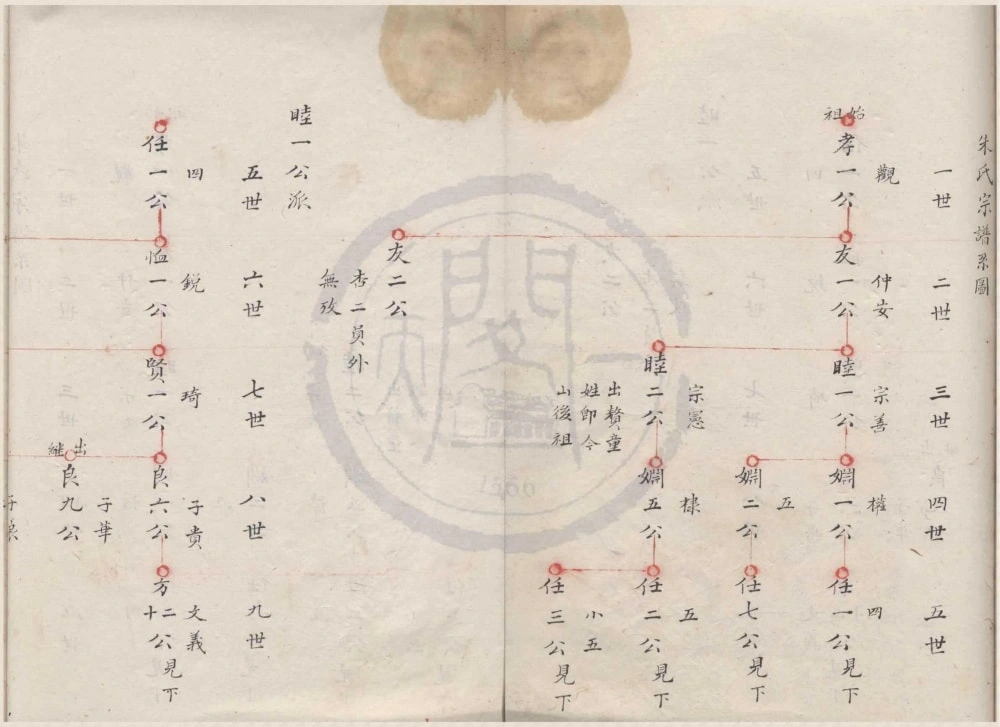 朱氏宗譜系圖
一世
始祖
孝一公
觀
二世
友一公
仲安
友二公
杏二員外
無攷
三世
睦一公
宗善
睦二公
宗憲
出贅童
姓即今
山後祖
四世
嫺一公
權
嫺二公
五
嫺五公
棣
五世
任一公見下
四
任七公見下
任二公見下
五
任三公見下
小五
睦一公派
五世
任一公
四
六世
恤一公
銳
七世
賢一公
琦
八世
良六公
子貴
出繼
良九公
子華
九世
方二十公見下
文義